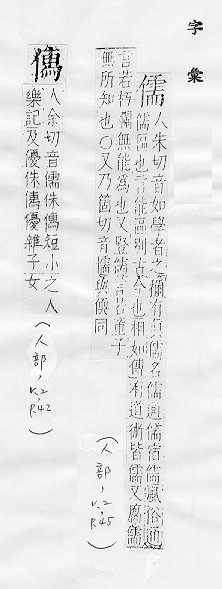 字彙
儒 人朱切音如學者之稱有真儒名儒通儒宿儒風俗通
儒區也言能區別古今也相如傳有道術皆儒又腐儒
言若朽爛無能為也又豎儒言若童子
無所知也〇又乃箇切音懦與偄同
(人部, k2, R45)
人余切音儒侏短小之人
樂記及優侏優雜子女
(人部, k2, R42)